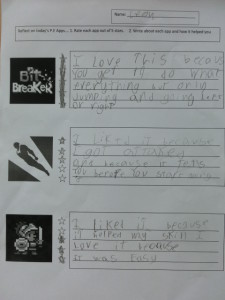 Name: Leon
Reflect on today's P.E Apps... 1. Rate each app out of 5 stars. 2. Write about each app and how it helped you.
Bit
Breaker
I love this becaus
you get to do what
everything but only
jumping and going left
or right
I liked it because
I got
because it tells
you before you
I liked it because
it helped my skill I
love it because
it was easy